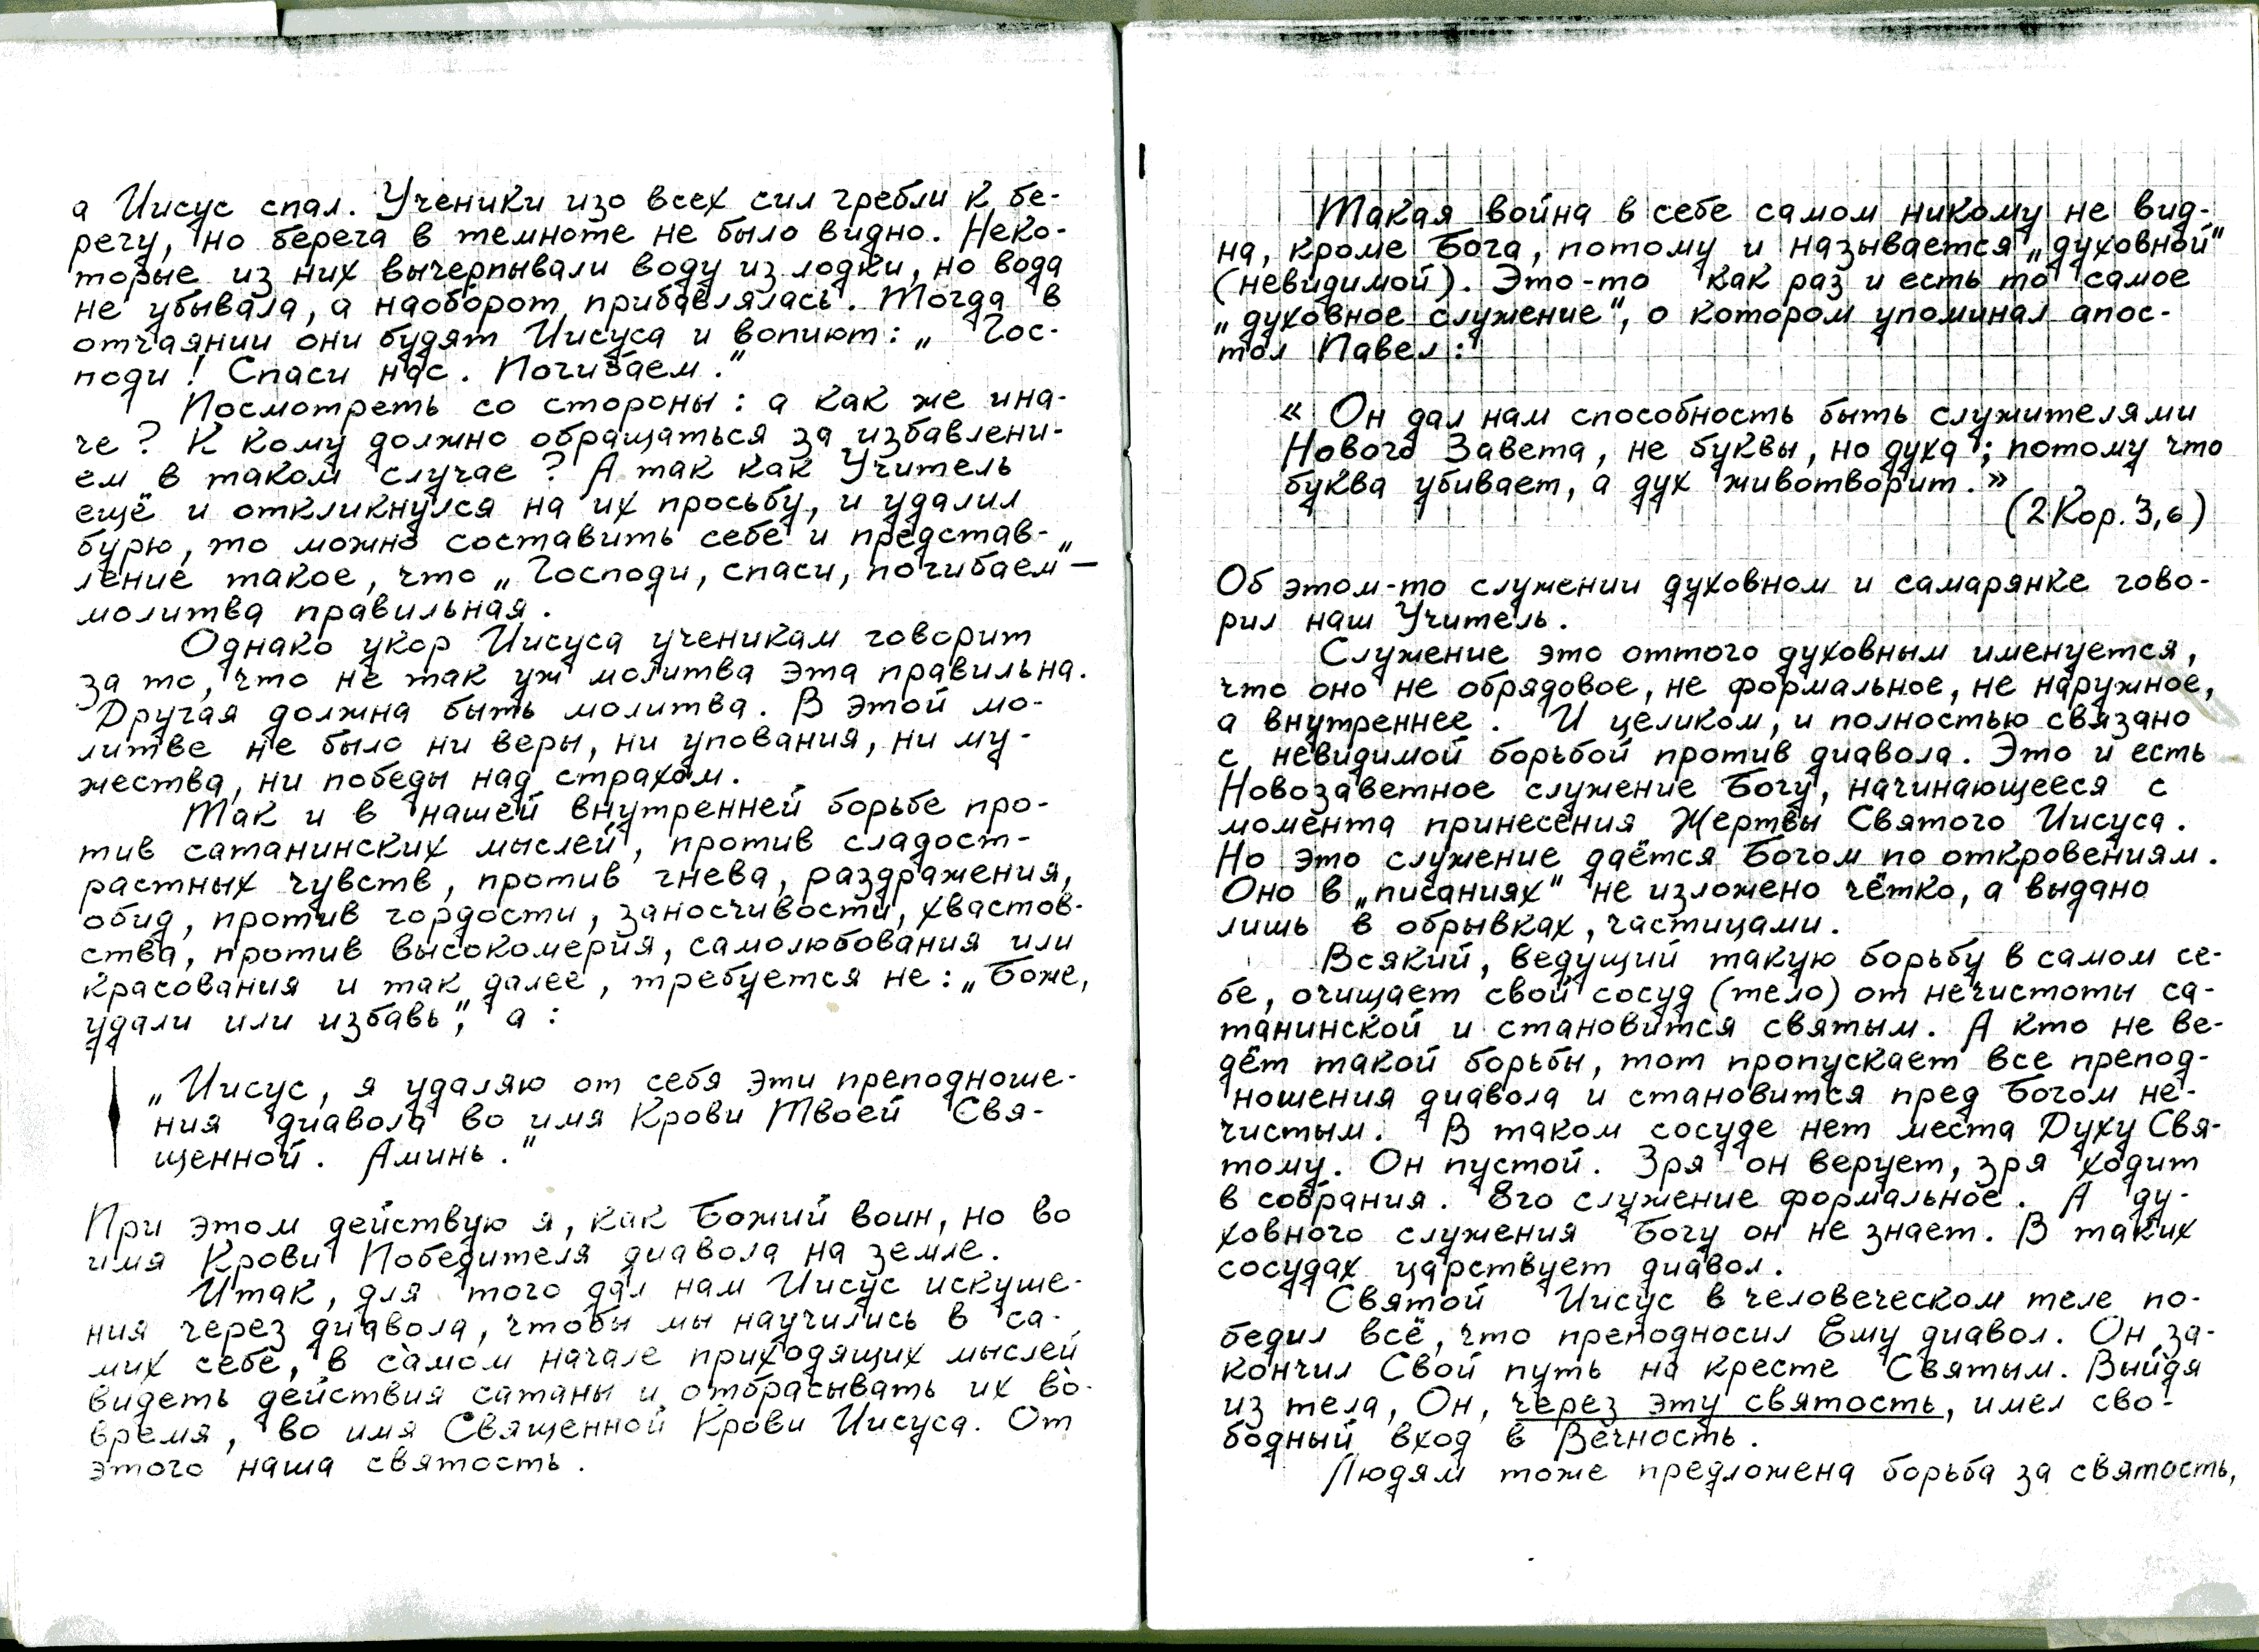 а Иисус спал. Ученики изо всех сил гребли к бе-
регу, но берега в темноте не было видно. Неко-
торые из них вычерпывали воду из лодки, но вода
не убывала, а наоборот прибавлялась. Тогда в
отчаянии они будят Иисуса и вопиют: „ Гос-
поди! Спаси нас. Погибаем."
Посмотреть со стороны: а как же ина-
че? К кому должно обращаться за избавлени-
ем в таком случае? А так как Учитель
ещё и откликнулся на их просьбу, и удалил
бурю, то можно составить себе и представ-
ление такое, что „Господи, спаси, погибаем" —
молитва правильная.
Однако укор Иисуса ученикам говорит
за то, что не так уж молитва эта правильна.
Другая должна быть молитва. В этой мо-
литве не было ни веры, ни упования, ни му-
жества, ни победы над страхом.
Так и в нашей внутренней борьбе про-
тив сатанинских мыслей, против сладост-
растных чувств, против гнева, раздражения,
обид, против гордости, заносчивости, хвастов-
ства, против высокомерия, самолюбования или
красования и так далее, требуется не: „Боже,
удали или избавь", а:
„Иисус, я удаляю от себя эти преподноше-
ния диавола во имя Крови Твоей Свя-
щенной. Аминь."
При этом действую я, как Божий воин, но во
имя Крови Победителя диавола на земле.
Итак, для того дал нам Иисус искуше-
ния через диавола, чтобы мы научились в са-
мих себе, в самом начале приходящих мыслей
видеть действия сатаны и отбрасывать их во-
время, во имя Священной Крови Иисуса. От
этого наша святость.
Такая война в себе самом никому не вид-
на, кроме Бога, потому и называется „духовной"
(невидимой). Это-то как раз и есть то самое
„духовное служение", о котором упоминал апос-
тол Павел:
« Он дал нам способность быть служителями
Нового Завета, не буквы, но духа; потому что
буква убивает, а дух животворит.»
(2Кор. 3,6)
Об этом-то служении духовном и самарянке гово-
рил наш Учитель.
Служение это оттого духовным именуется,
что оно не обрядовое, не формальное, не наружное,
а внутреннее. И целиком, и полностью связано
с невидимой борьбой против диавола. Это и есть
Новозаветное служение Богу, начинающееся с
момента принесения Жертвы Святого Иисуса.
Но это служение даётся Богом по откровениям.
Оно в „писаниях" не изложено чётко, а выдано
лишь в обрывках, частицами.
Всякий, ведущий такую борьбу в самом се-
бе, очищает свой сосуд (тело) от нечистоты са-
танинской и становится святым. А кто не ве-
дёт такой борьбы, тот пропускает все препод-
ношения диавола и становится пред Богом не-
чистым. В таком сосуде нет места Духу Свя-
тому. Он пустой. Зря он верует, зря ходит
в собрания. Его служение формальное. А ду-
ховного служения Богу он не знает. В таких
сосудах царствует диавол.
Святой Иисус в человеческом теле по-
бедил всё, что преподносил Ему диавол. Он за-
кончил Свой путь на кресте Святым. Выйдя
из тела, Он, через эту святость, имел сво-
бодный вход в Вечность.
Людям тоже предложена борьба за святость,